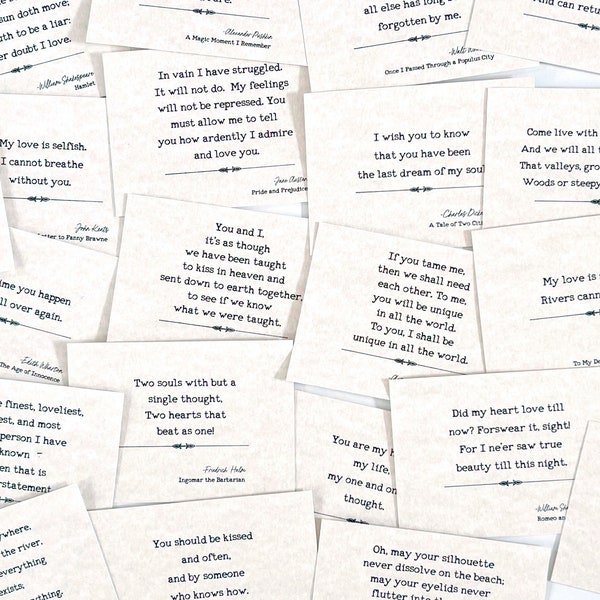 sun doth move;
to be a liar:
doubt I love.
-William Shakespeare
Hamlet
-Alexander Pushkin
A Magic Moment I Remember
all else has long
forgotten by me.
Once I Passed Through a Populus City
And can retu
In vain I have struggled.
It will not do. My feelings
will not be repressed. You
must allow me to tell
you how ardently I admire
and love you.
-Jane Austen
Pride and Prejudice
My love is selfish.
I cannot breathe
without you.
-John Keats
etter to Fanny Brawne
I wish you to know
that you have been
the last dream of my soul
-Charles Dicke
A Tale of Two Citi
Come live with
And we will all t
That valleys, gro
Woods or steepy
You and I,
it's as though
we have been taught
to kiss in heaven and
sent down to earth together,
to see if we know
what we were taught.
If you tame me,
then we shall need
each other. To me,
you will be unique
in all the world.
To you, I shall be
unique in all the world.
My love is
Rivers cann
To My De
ime you happen
ll over again.
-Edith Wharton
The Age of Innocence
Two souls with but a
single thought,
Two hearts that
beat as one!
-Friedrich Halm
Ingomar the Barbarian
Did my heart love till
now? Forswear it, sight!
For I ne'er saw true
beauty till this night.
-William Sha
Romeo and
e finest, loveliest,
est, and most
person I have
known -
en that is
erstatement
You are my h
my life,
my one and on
thought.
where,
the river.
everything
exists,
ything.
You should be kissed
and often,
and by someone
who knows how.
Oh, may your silhouette
never dissolve on the beach;
may your eyelids never
flutter into th